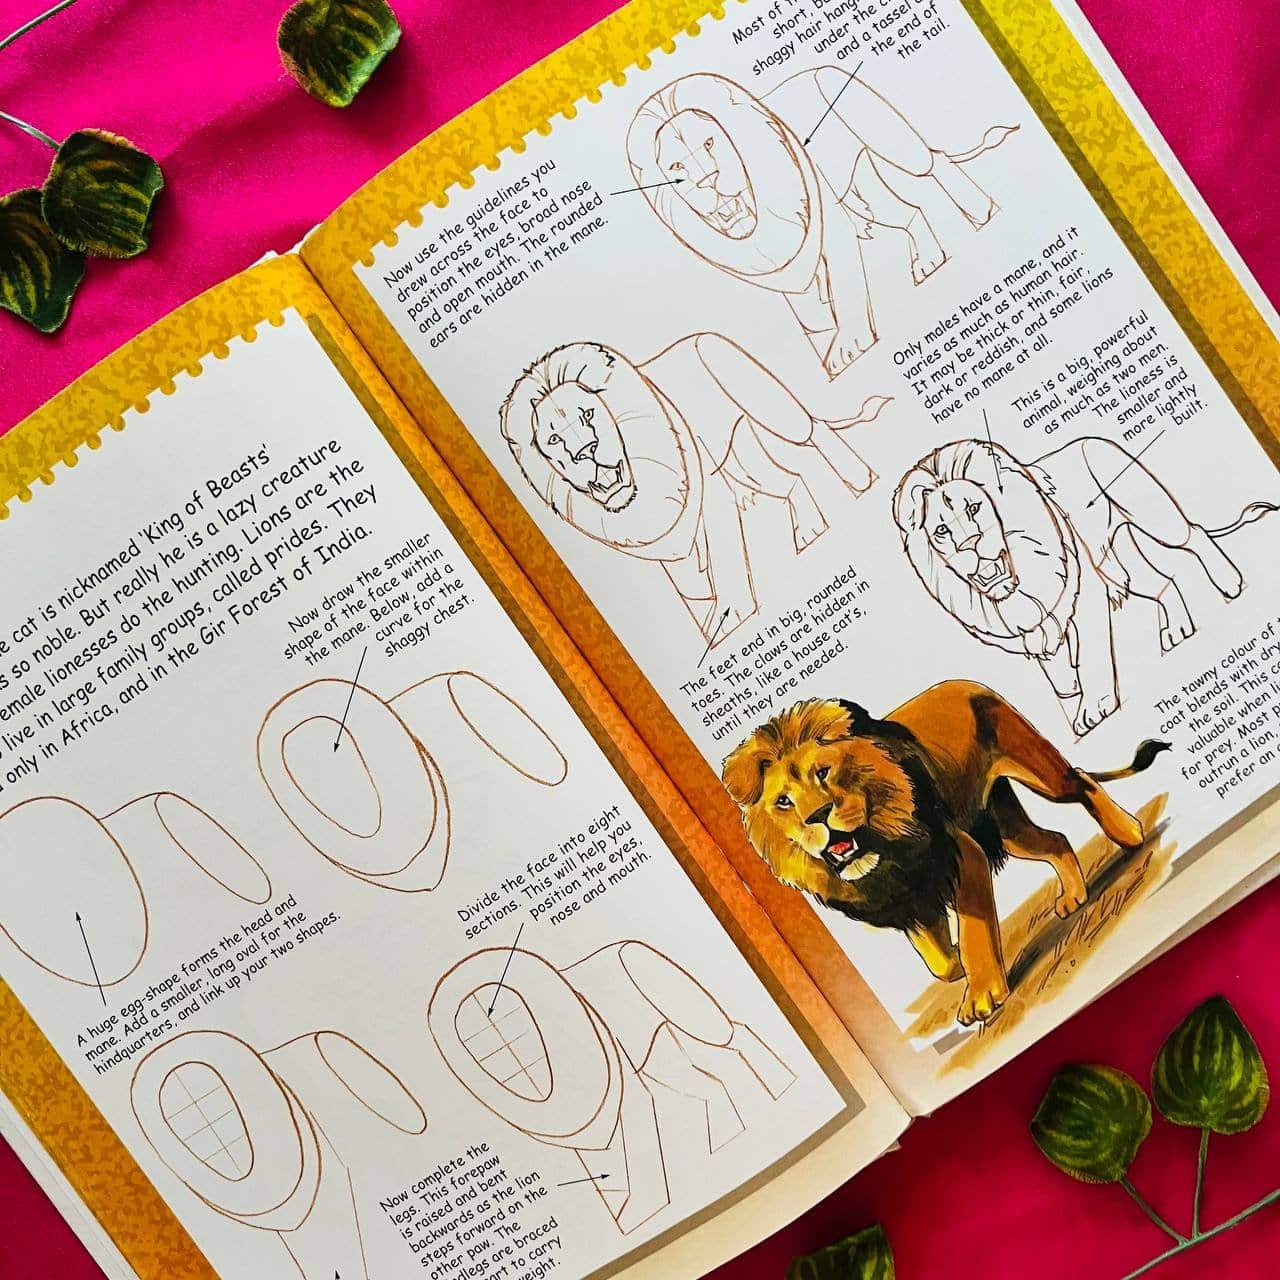 cat is nicknamed 'King of Beasts'
so noble. But really he is a lazy creature
lionesses do the hunting. Lions are the
live in large family groups, called prides. They
only in Africa, and in the Gir Forest of India.
Now draw the smaller
shape of the face within
the mane. Below, add a
curve for the
shaggy chest.
A huge egg-shape forms the head and
mane. Add a smaller, long oval for the
hindquarters, and link up your two shapes.
Divide the face into eight
sections. This will help you
position the eyes,
nose and mouth.
Now complete the
legs. This forepaw
is raised and bent
backwards as the lion
steps forward on the
other paw. The
are braced
to carry
Now use the guidelines you
drew across the face to
position the eyes, broad nose
and open mouth. The rounded
ears are hidden in the mane.
Most of
short,
shaggy hair
under the
and a tassel
the end of
the tail.
Only males have a mane, and it
varies as much as human hair.
It may be thick or thin, fair,
dark or reddish, and some lions
have no mane at all.
This is a big, powerful
animal, weighing about
as much as two men.
The lioness is
smaller and
more lightly
built.
The feet end in big, rounded
toes. The claws are hidden in
sheaths, like a house cat's,
until they are needed.
The tawny colour of
coat blends with
the soil. This
valuable when
for prey. Most
outrun a lion,
prefer an